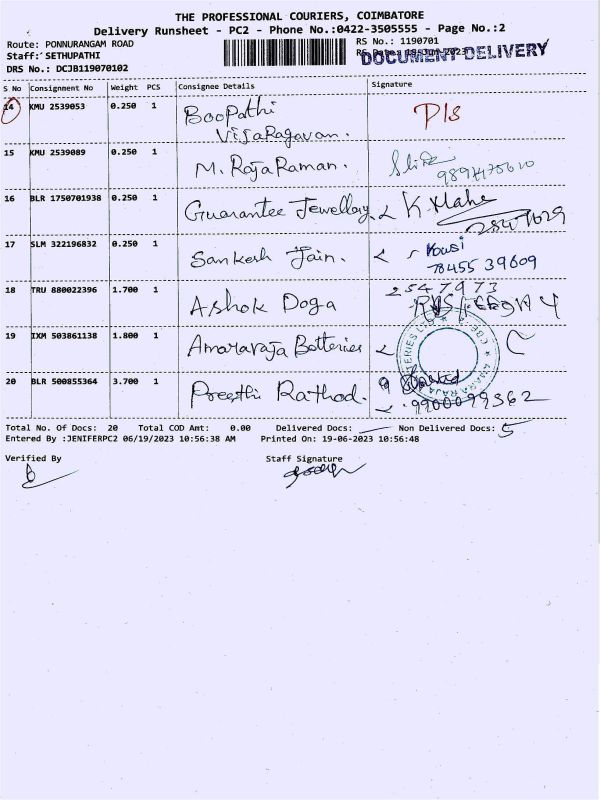 THE PROFESSIONAL COURIERS, COIMBATORE
Delivery Runsheet - PC2 - Phone No.:0422-3505555 - Page No.:2
Route: PONNURANGAM ROAD
RS No.: 1190701
Staff: SETHUPATHI
DOCUMENT DELIVERY
DRS No.: DCJB119070102
S No Consignment No Weight PCS Consignee Details Signature
14 KMU 2539053 0.250 1 Boopathi
Vijaragavan.
15 KMU 2539089 0.250 1 M. Raja Raman.
16 BLR 1750701938 0.250 1 Guarantee Jewellery
17 SLM 322196832 0.250 1 Sankesh Jain. Kousi
78455 39609
18 TRU 880022396 1.700 1 Ashok Doga 2547973
19 IXM 503861138 1.800 1 Amararaja Batteries
20 BLR 500855364 3.700 1 Preethi Rathod.
9900099362
Total No. Of Docs: 20 Total COD Amt: 0.00 Delivered Docs: Non Delivered Docs: 5
Entered By :JENIFERPC2 06/19/2023 10:56:38 AM Printed On: 19-06-2023 10:56:48
Verified By Staff Signature